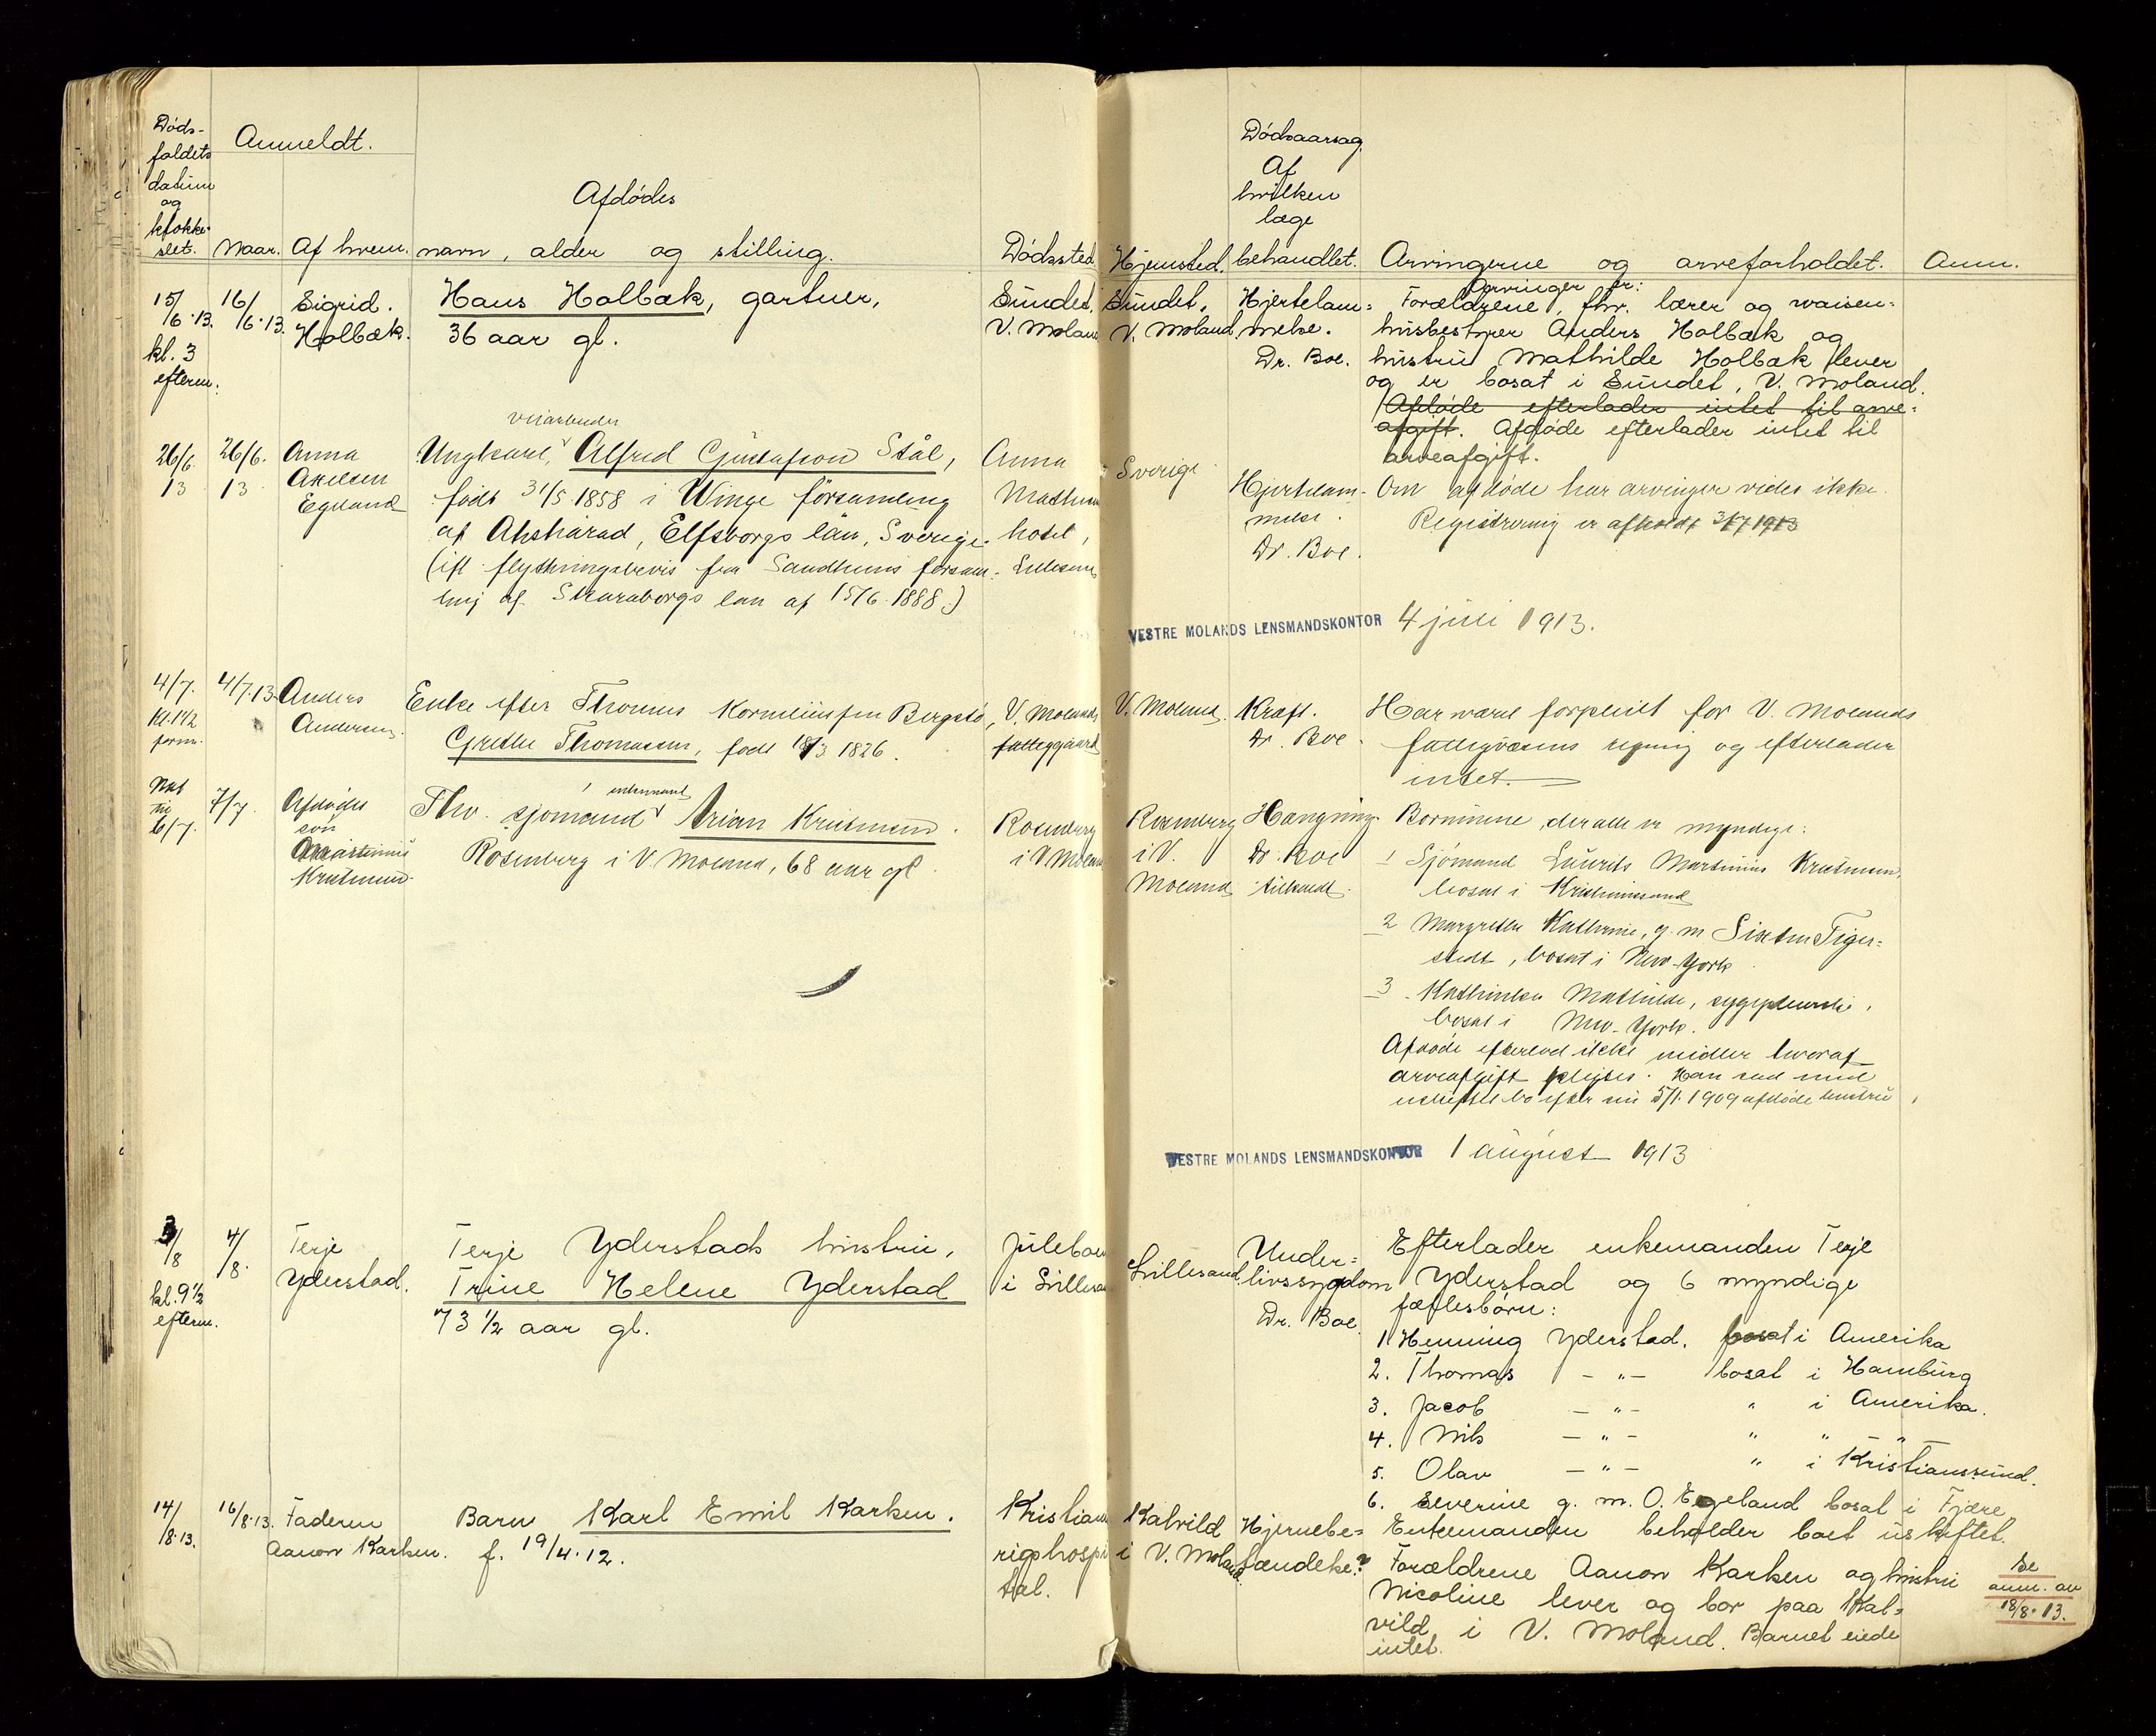 Døds-
faldets
datum
og
klokke-
slet.
Anmeldt.
Naar.
Af hvem.
Afdødes
navn, alder og stilling.
Dødssted.
Hjemsted.
Dødsaarsag
Af
hvilken
læge
behandlet.
Arvingerne og arveforholdet.
Anm.
15/
/6.13.
kl. 3
efterm.
16/
/6.13.
Sigrid.
Holbæk.
Hans Holbæk, gartner,
36 aar gl.
Sundet.
V. Moland
Sundet,
V. Moland.
Hjertelam=
melse.
Dr. Boe.
Arvinger er:
Forældrene, fhv. lærer og waisen=
husbestyrer Anders Holbæk og
hustru Mathilde Holbæk lever
og er bosat i Sundet, V. Moland.
Afdøde efterlader intet til arve=
afgift. Afdøde efterlader intet til
arveafgift.
26/6.
13
26/6.
13
Anna
Axelsen
Egeland
Ungkarl, Alfred Gustafson Stål,
født 31/5 1858 i Winge församling
af Ahshärad, Elfsborgs län, Sverige.
(ifl. flytningsbevis fra Sandhems försam=
ling af Skaraborgs län af 15/6 1888.)
Anna
hotel,
Sverige
Hjertelam-
melse.
Dr. Boe.
Om afdøde har arvinger vides ikke.
Registrering er afholdt 3/7 1913
VESTRE MOLANDS LENSMANDSKONTOR 4 juli 1913.
4/7.
kl. 1 1/2
form.
4/7.13.
Anders
Andersen.
Enke efter Thomas Korneliussen Bergstø,
Grethe Thomassen, født 18/3 1826.
V. Molands
fattiggaard
V. Moland.
Kræft.
Dr. Boe.
Har været forpleiet for V. Molands
fattigvæsens regning og efterlader
intet.
Nat
til
6/7.
7/7.
Afdødes
søn
Martinius
Kristensen.
enkemand
Fhv. sjømand Arian Kristensen.
Rosenberg i V. Moland, 68 aar gl.
Rosenberg
i V. Moland
Rosenberg
i V.
Moland
Hængning.
Dr. Boe
tilkaldt.
Børnene, der alle er myndige:
1 Sjømand Laurits Martinius Kristensen,
bosat i Kristianssand
2 Margrethe Kathrine, g. m. Sixten Tiger=
stedt, bosat i New-York.
3 Kathinka Mathilde, sygepleierske,
bosat i New-York.
Afdøde efterlod ikke midler hvoraf
arveafgift pligtes. Han sad med
uskiftet bo efter sin 5/1. 1909 afdøde hustru.
VESTRE MOLANDS LENSMANDSKONTOR 1 august 1913
3/8
kl. 9 1/2
efterm.
4/
/8.
Terje
Yderstad.
Terje Yderstads hustru,
Trine Helene Yderstad
73 1/2 aar gl.
i Lillesand
Lillesand.
Under=
livssygdom
Dr. Boe.
Efterlader enkemanden Terje
Yderstad og 6 myndige
fællesbørn:
1. Henning Yderstad. bosat i Amerika
2. Thomas — " — bosat i Hamburg
3. Jacob — " — " i Amerika.
4. Nils — " — " " "
5. Olav — " — " i Kristianssund.
6. Severine g. m. O. Egeland bosat i Fjære
Enkemanden beholder boet uskiftet.
14/
/8.13.
16/8.13.
Faderen
Aanon Karken.
Barn Karl Emil Karken.
f. 19/4.12.
tal.
Kalvild
i V. Moland.
Hjernebe=
tændelse?
Forældrene Aanon Karken og hustru
Nicoline lever og bor paa Kal=
vild i V. Moland. Barnet eiede
intet.
Se
anm. av
18/8.13.